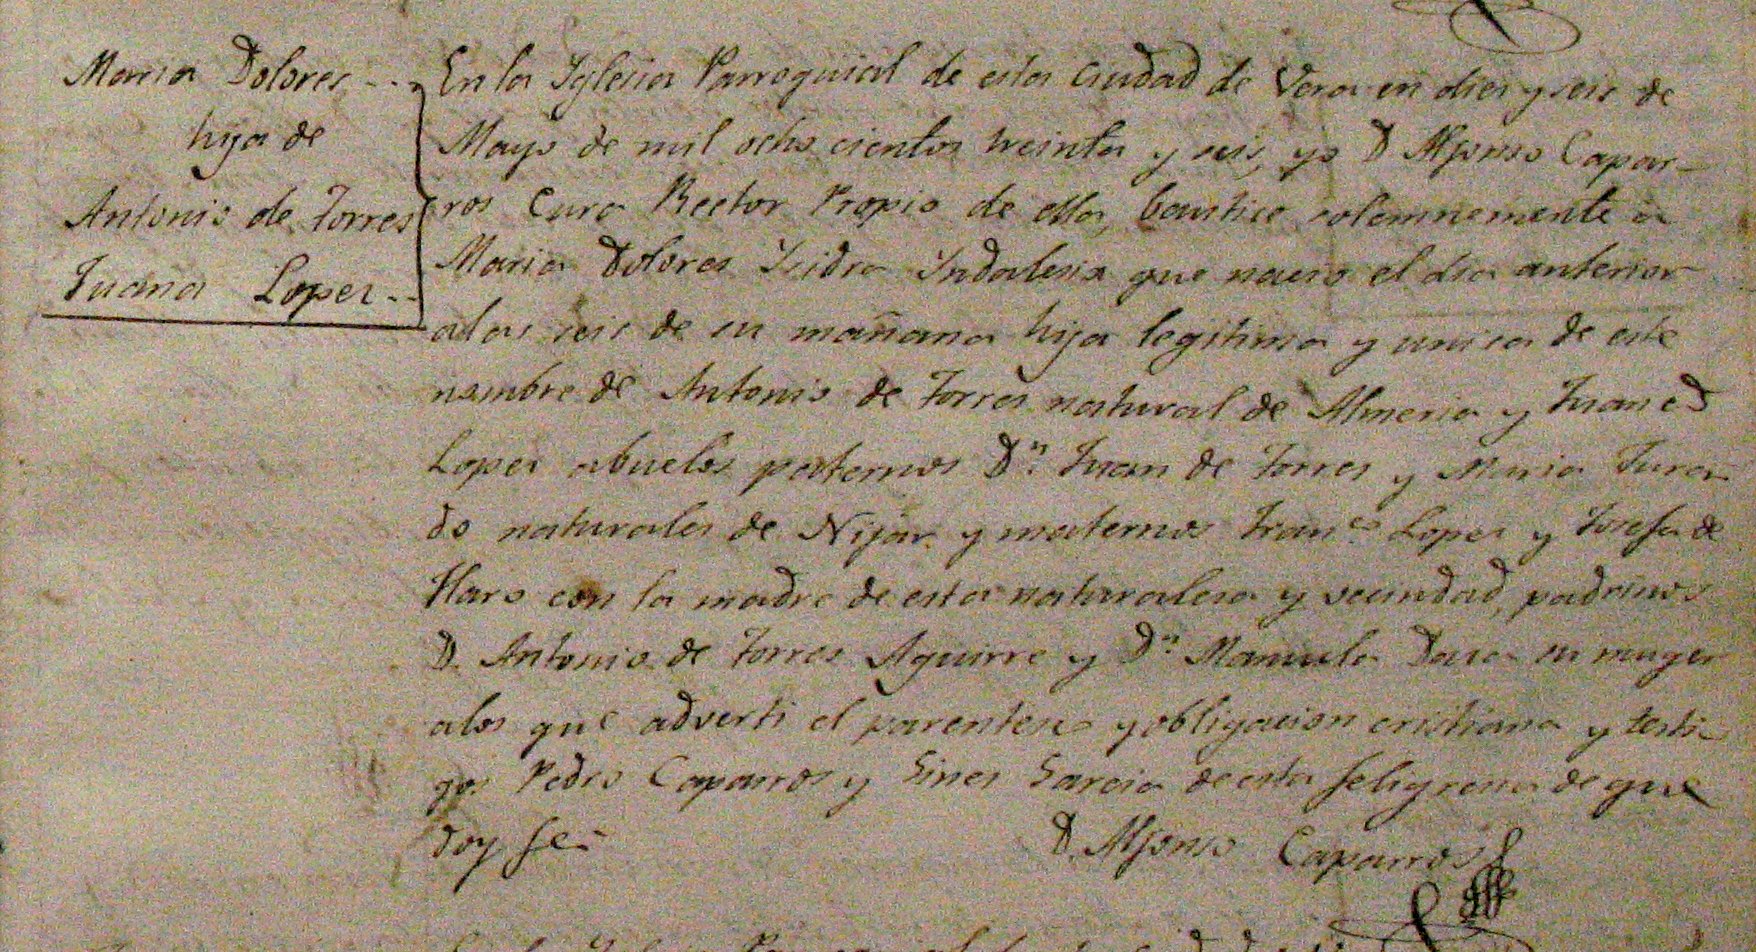 Maria Dolores
hija de
Antonio de Torres
Juana Lopez
En la Yglesia Parroquial de esta Ciudad de Vera en dies y seis de
Mayo de mil ocho cientos treinta y seis, yo D Alfonso Capar-
ros Cura Rector Propio de ella, bautice solemnemente a
Maria Dolores Ysidra Yndalesia que nacio el dia anterior
alas seis de su mañana hija legitima y unica de este
nombre de Antonio de Torres natural de Almeria y Juana
Lopez abuelos paternos Dn. Juan de Torres y Maria Jura-
do naturales de Nijar y maternos Franco Lopez y Josefa de
Haro con la madre de esta naturalesa y vecindad, padrinos
D. Antonio de Torres Aguirre y Da Manuela su muger
alos que adverti el parentesco y obligacion cristiana y testi-
gos Pedro Caparros y Gines Garcia de esta feligresia de que
doy fe
D. Alfonso Caparros